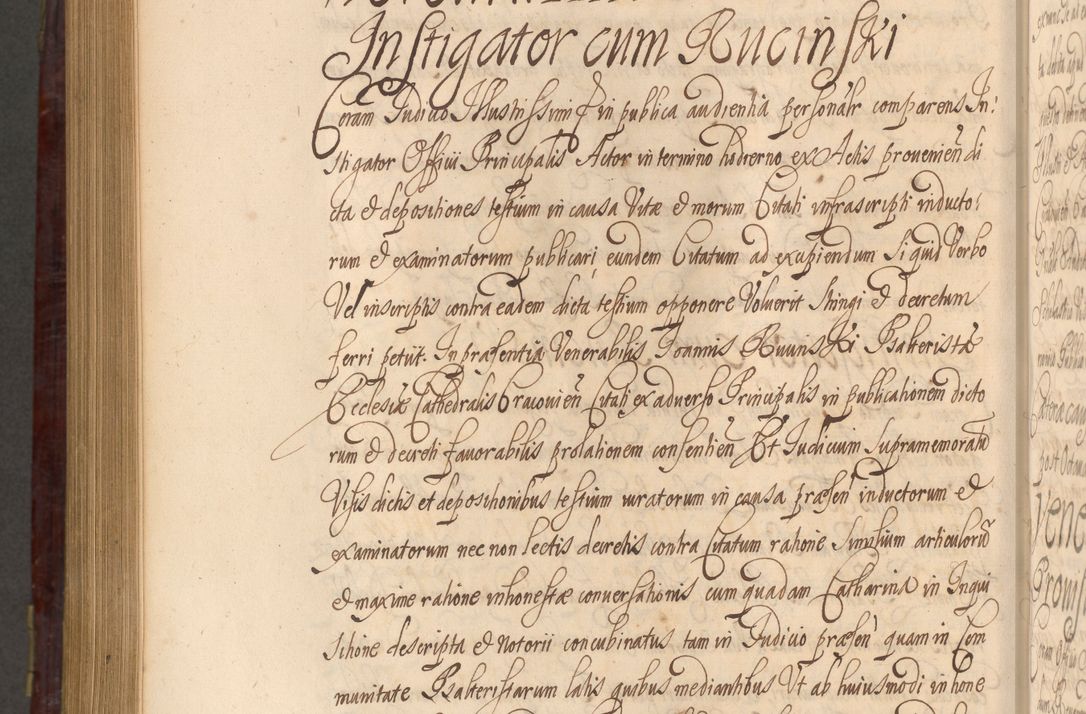 Instigator cum Rucinski
Coram Judicio Illustrissimi in publica audientia personalr comparens In:
stigator Officii Principalis Actor in termino hodierno ex Actis provenien di
cta et depositiones testium in causa Vitæ et morum Citati infrascripti inducto:
rum et examinatorum publicari eundem Citatum ad excipiendum si quid Verbo
Vel inscriptis contra eadem dicta testium opponere Voluerit stringi et decretum
ferri petiit. In præsentia Venerabilis Joannis Rucinski Psalteristæ
Ecclesiæ Cathedralis Cracovien Citati ex adverso Principalis in publicationem dicto
rum et decreti favorabilis prolationem consentien Et Judicium supramemoratu
Visis dictis et depositionibus testium iuratorum in causa præsen inductorum et
examinatorum nec non lectis decretis contra Citatum ratione similium articuloru
et maxime ratione inhonestæ conversationis cum quadam Catharina in Inqui
sitione descripta et notorii concubinatus tam in Judicio præsen quam in Com
munitate Psalteristarum latis quibus mediantibus Ut ab huiusmodi inhone